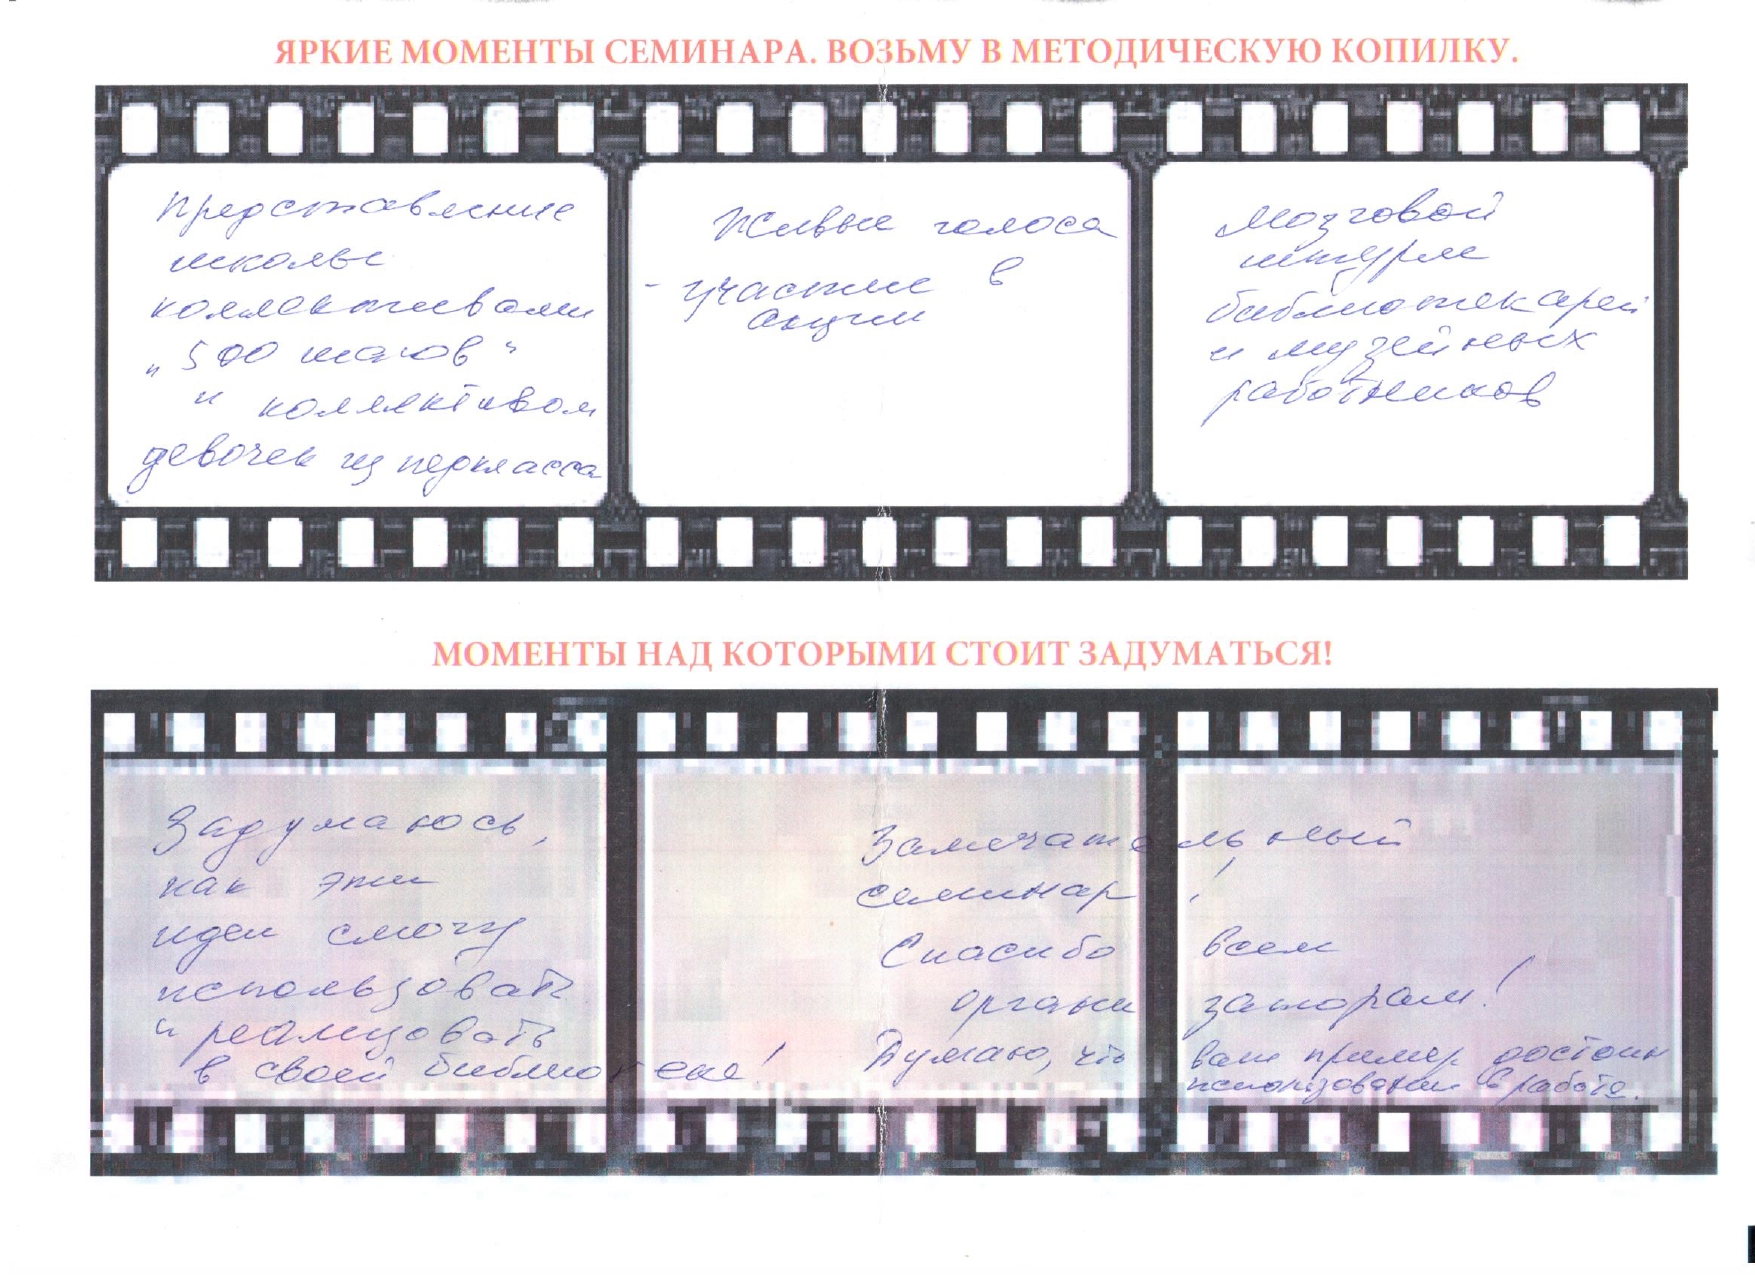 ЯРКИЕ МОМЕНТЫ СЕМИНАРА. ВОЗЬМУ В МЕТОДИЧЕСКУЮ КОПИЛКУ.
Представление
школы
коллективами
„500 шагов“
и коллективом
девочек из педкласса
Живые голоса
- участие в
акции
Мозговой
штурм
библиотекарей
и музейных
работников
МОМЕНТЫ НАД КОТОРЫМИ СТОИТ ЗАДУМАТЬСЯ!
Задумаюсь,
как эти
идеи смогу
использовать
и реализовать
в своей библиотеке!
Замечательный
семинар!
Спасибо всем
организаторам!
Думаю, что ваш пример достоин
использования в работе.